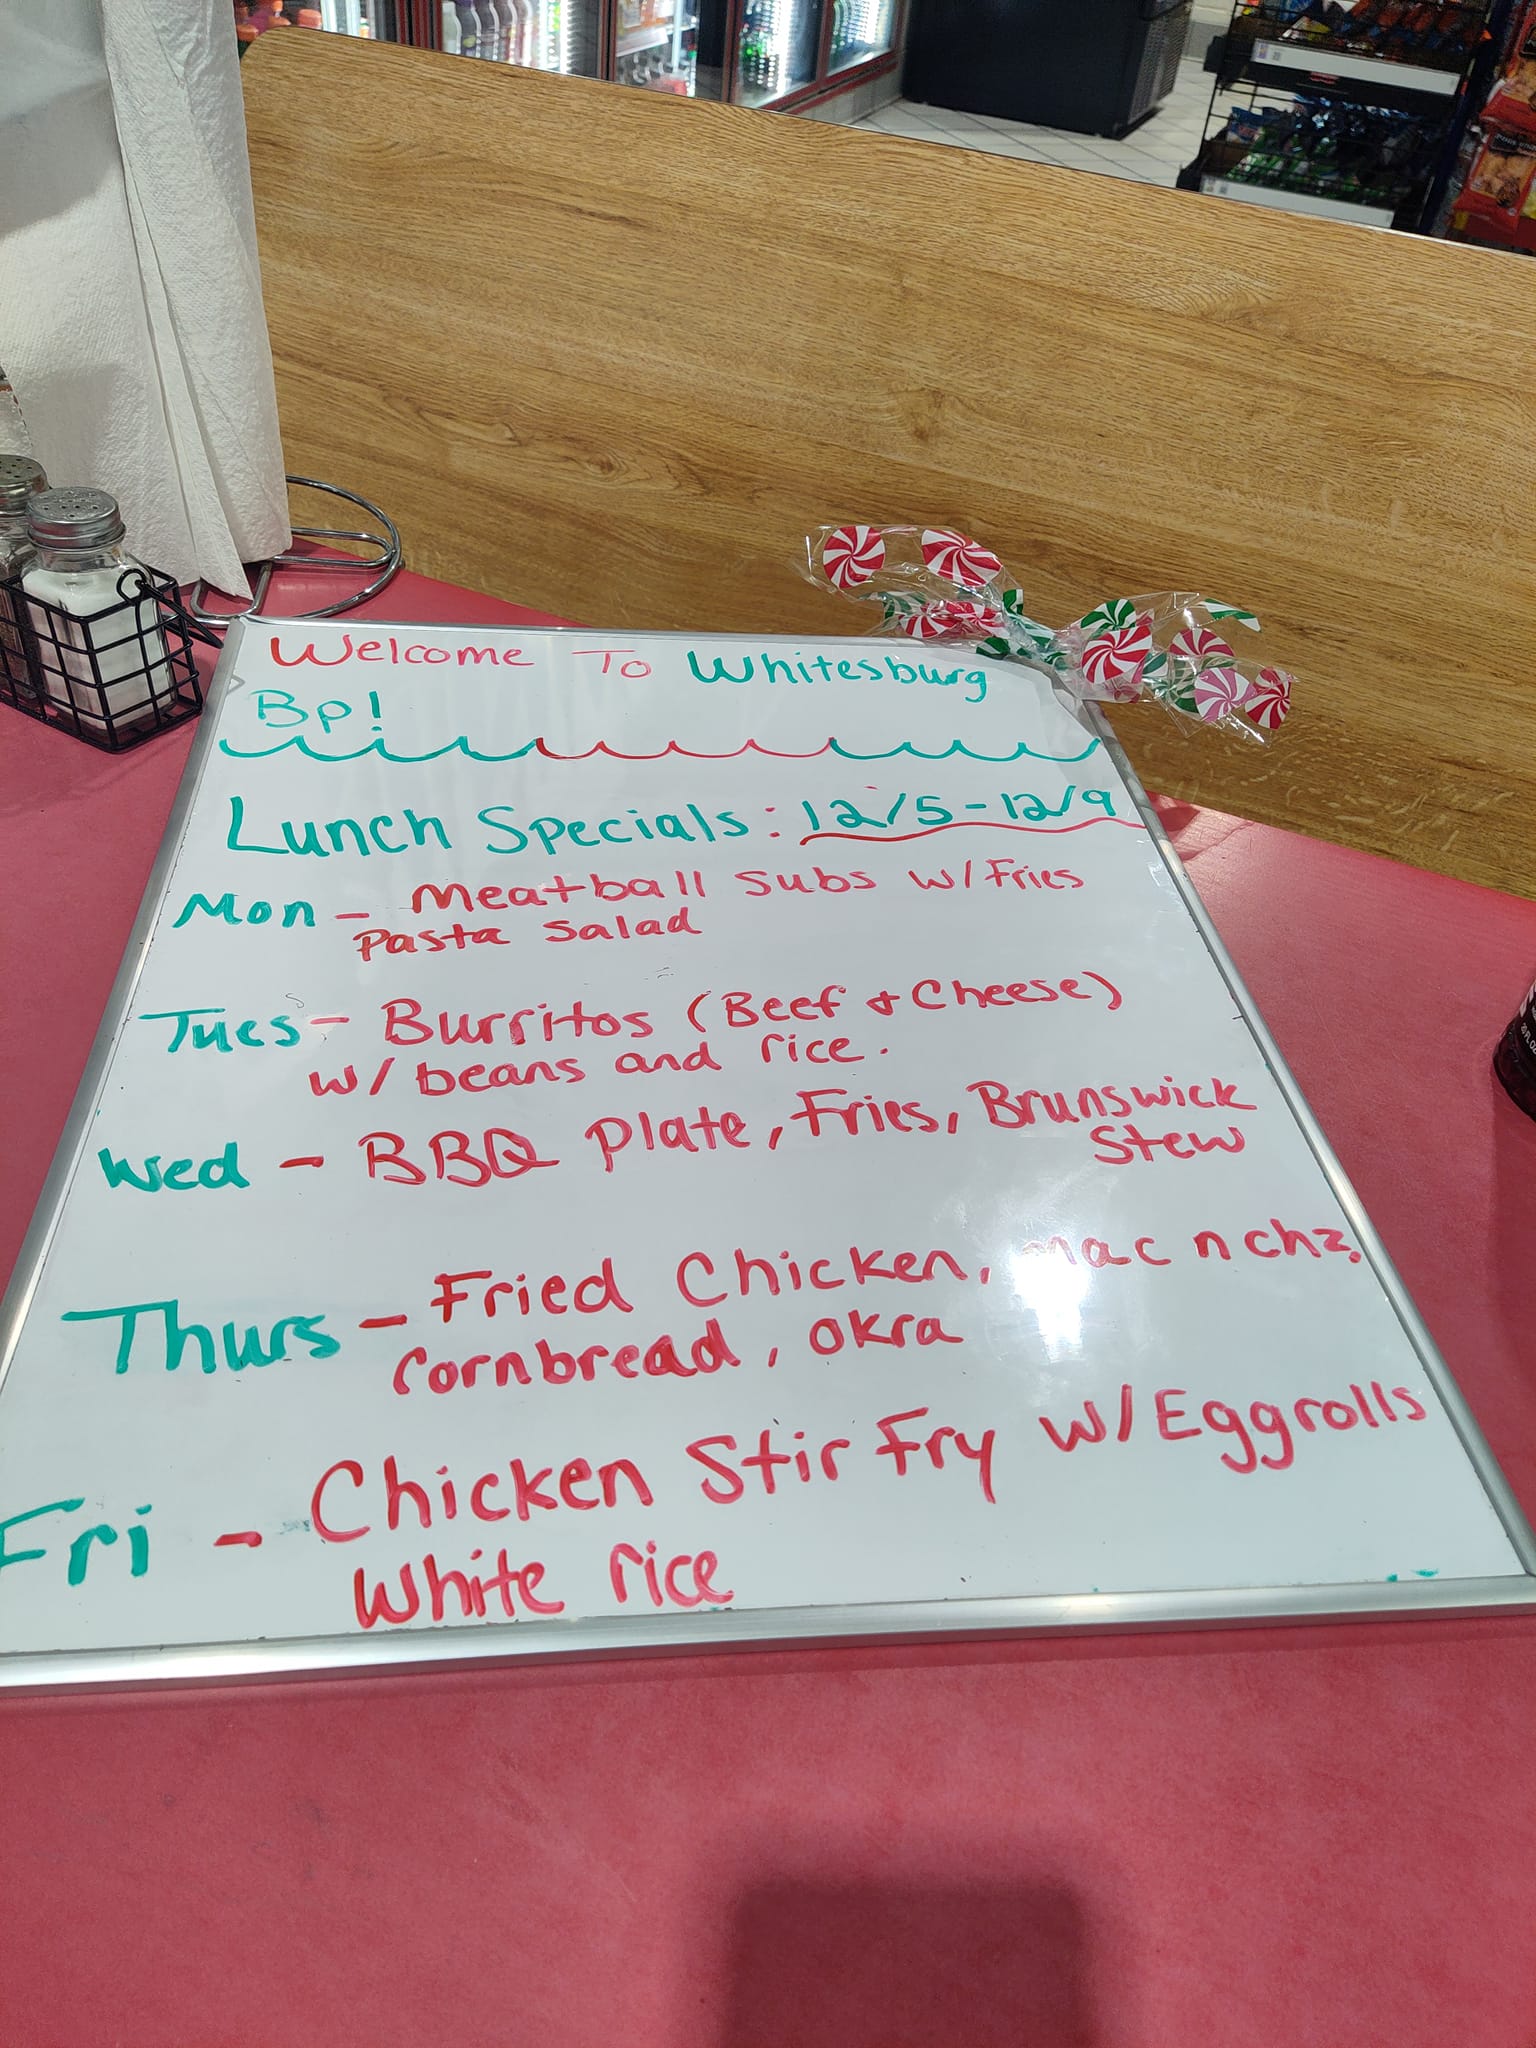 Welcome To Whitesburg
Bp!
Lunch Specials: 12/5-12/9
Mon - Meatball Subs w/Fries
Pasta Salad
Tues - Burritos (Beef & Cheese)
w/beans and rice.
Wed - BBQ Plate, Fries, Brunswick
Stew
Thurs - Fried Chicken, mac n chz,
Cornbread, okra
Fri - Chicken Stir Fry w/Eggrolls
White rice